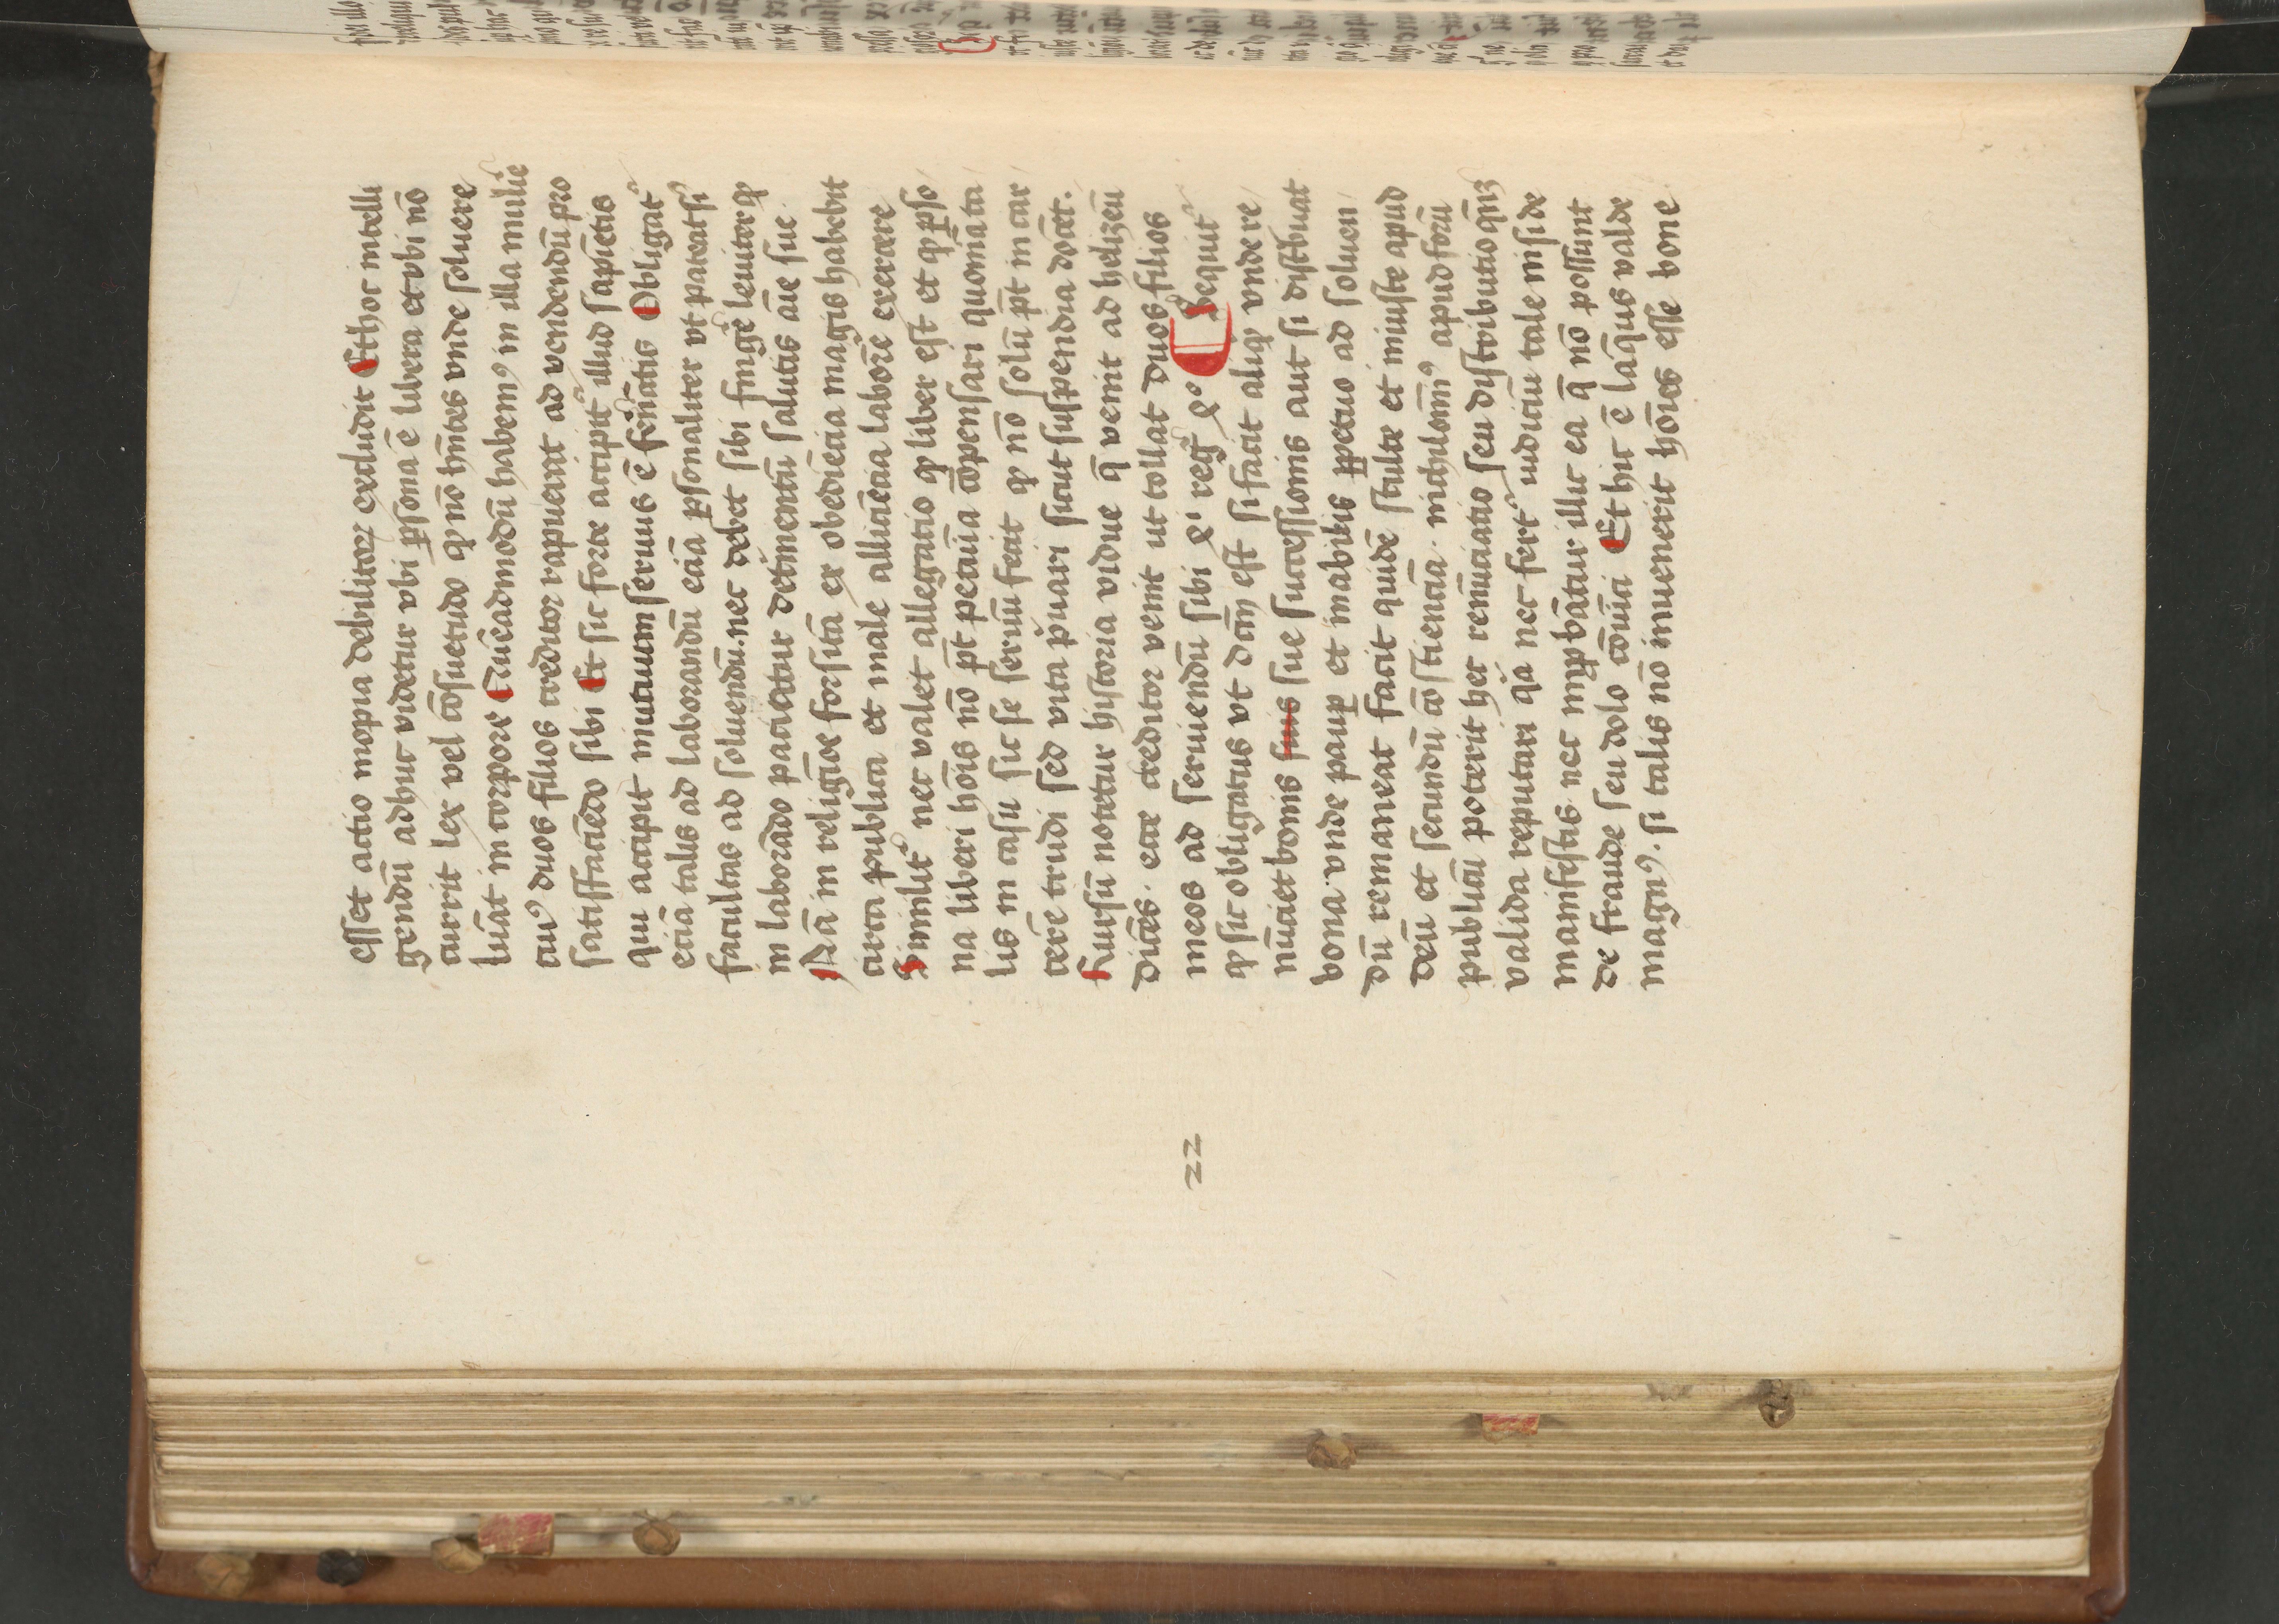 esset actio inopia debilitoꝝ excludit Et hoc intelli
gendū adhuc videtur vbi ꝑsona ē libera et vbi nō
currit lex vel cōsuetudo ꝙ nō hn̄tes vnde soluere
luāt in corpore Quēadmodū habemꝰ in illa mulie
cuiꝰ duos filios creditor rapuerat ad vendendū pro
satisffaciēdo sibi Et sic forte accipit᷑ illud sapiētis
qui accipit mutuum seruus ē fen̄atis Obligat᷑
eciā talis ad laborandū eciā ꝑsonaliter vt pateat si
facultas ad soluendū. nec debet sibi fingē leuiter ꝙ
in laborādo paciatur det᷑mentū salutis aīe sue
Nā in religiōe forsitā ex obediēcia magis habebit
circa publica et male alliciēcia laborē exercere
Similit᷑ nec valet allegatio ꝙ liber est et ꝙ ꝑso
na liberi hoīs nō pt̄ pecuīa cōpensari quom̄ ta
lis in casu sic se seruū fecit ꝙ nō solū pt̄ in car
cerē trudi sed vita p̄uari sicut suspendia docēt.
Rursū notetur historia vidue q̄ venit ad helizeū
dicēs. ecce creditor venit ut tollat duos filios
meos ad seruiendū sibi ꝭ reg᷑ Sequit᷑
ꝙ sic obligatus vt dc̄m est si facit aliqͥ vnde re
nūciet bonis suis sue successionis aut si distbuat
bona vnde pauꝑ et inabilis ꝑpetuo ad soluen
dū remaneat facit quidē stulte et iniuste apud
deū et secundū cōstienciā. nichilomīꝰ apud forū
publicū poterit hec renūciatio seu distributio qn̄ꝫ
valida reputari qͣa nec fert᷑ iudiciū tale nisi de
manifestis nec imꝓbātur illic ea q̄ nō possunt
de fraude seu dolo cōuīci Et hic ē laq̄us valde
magnꝰ. si talis nō inuenerit hoīes esse bone
22